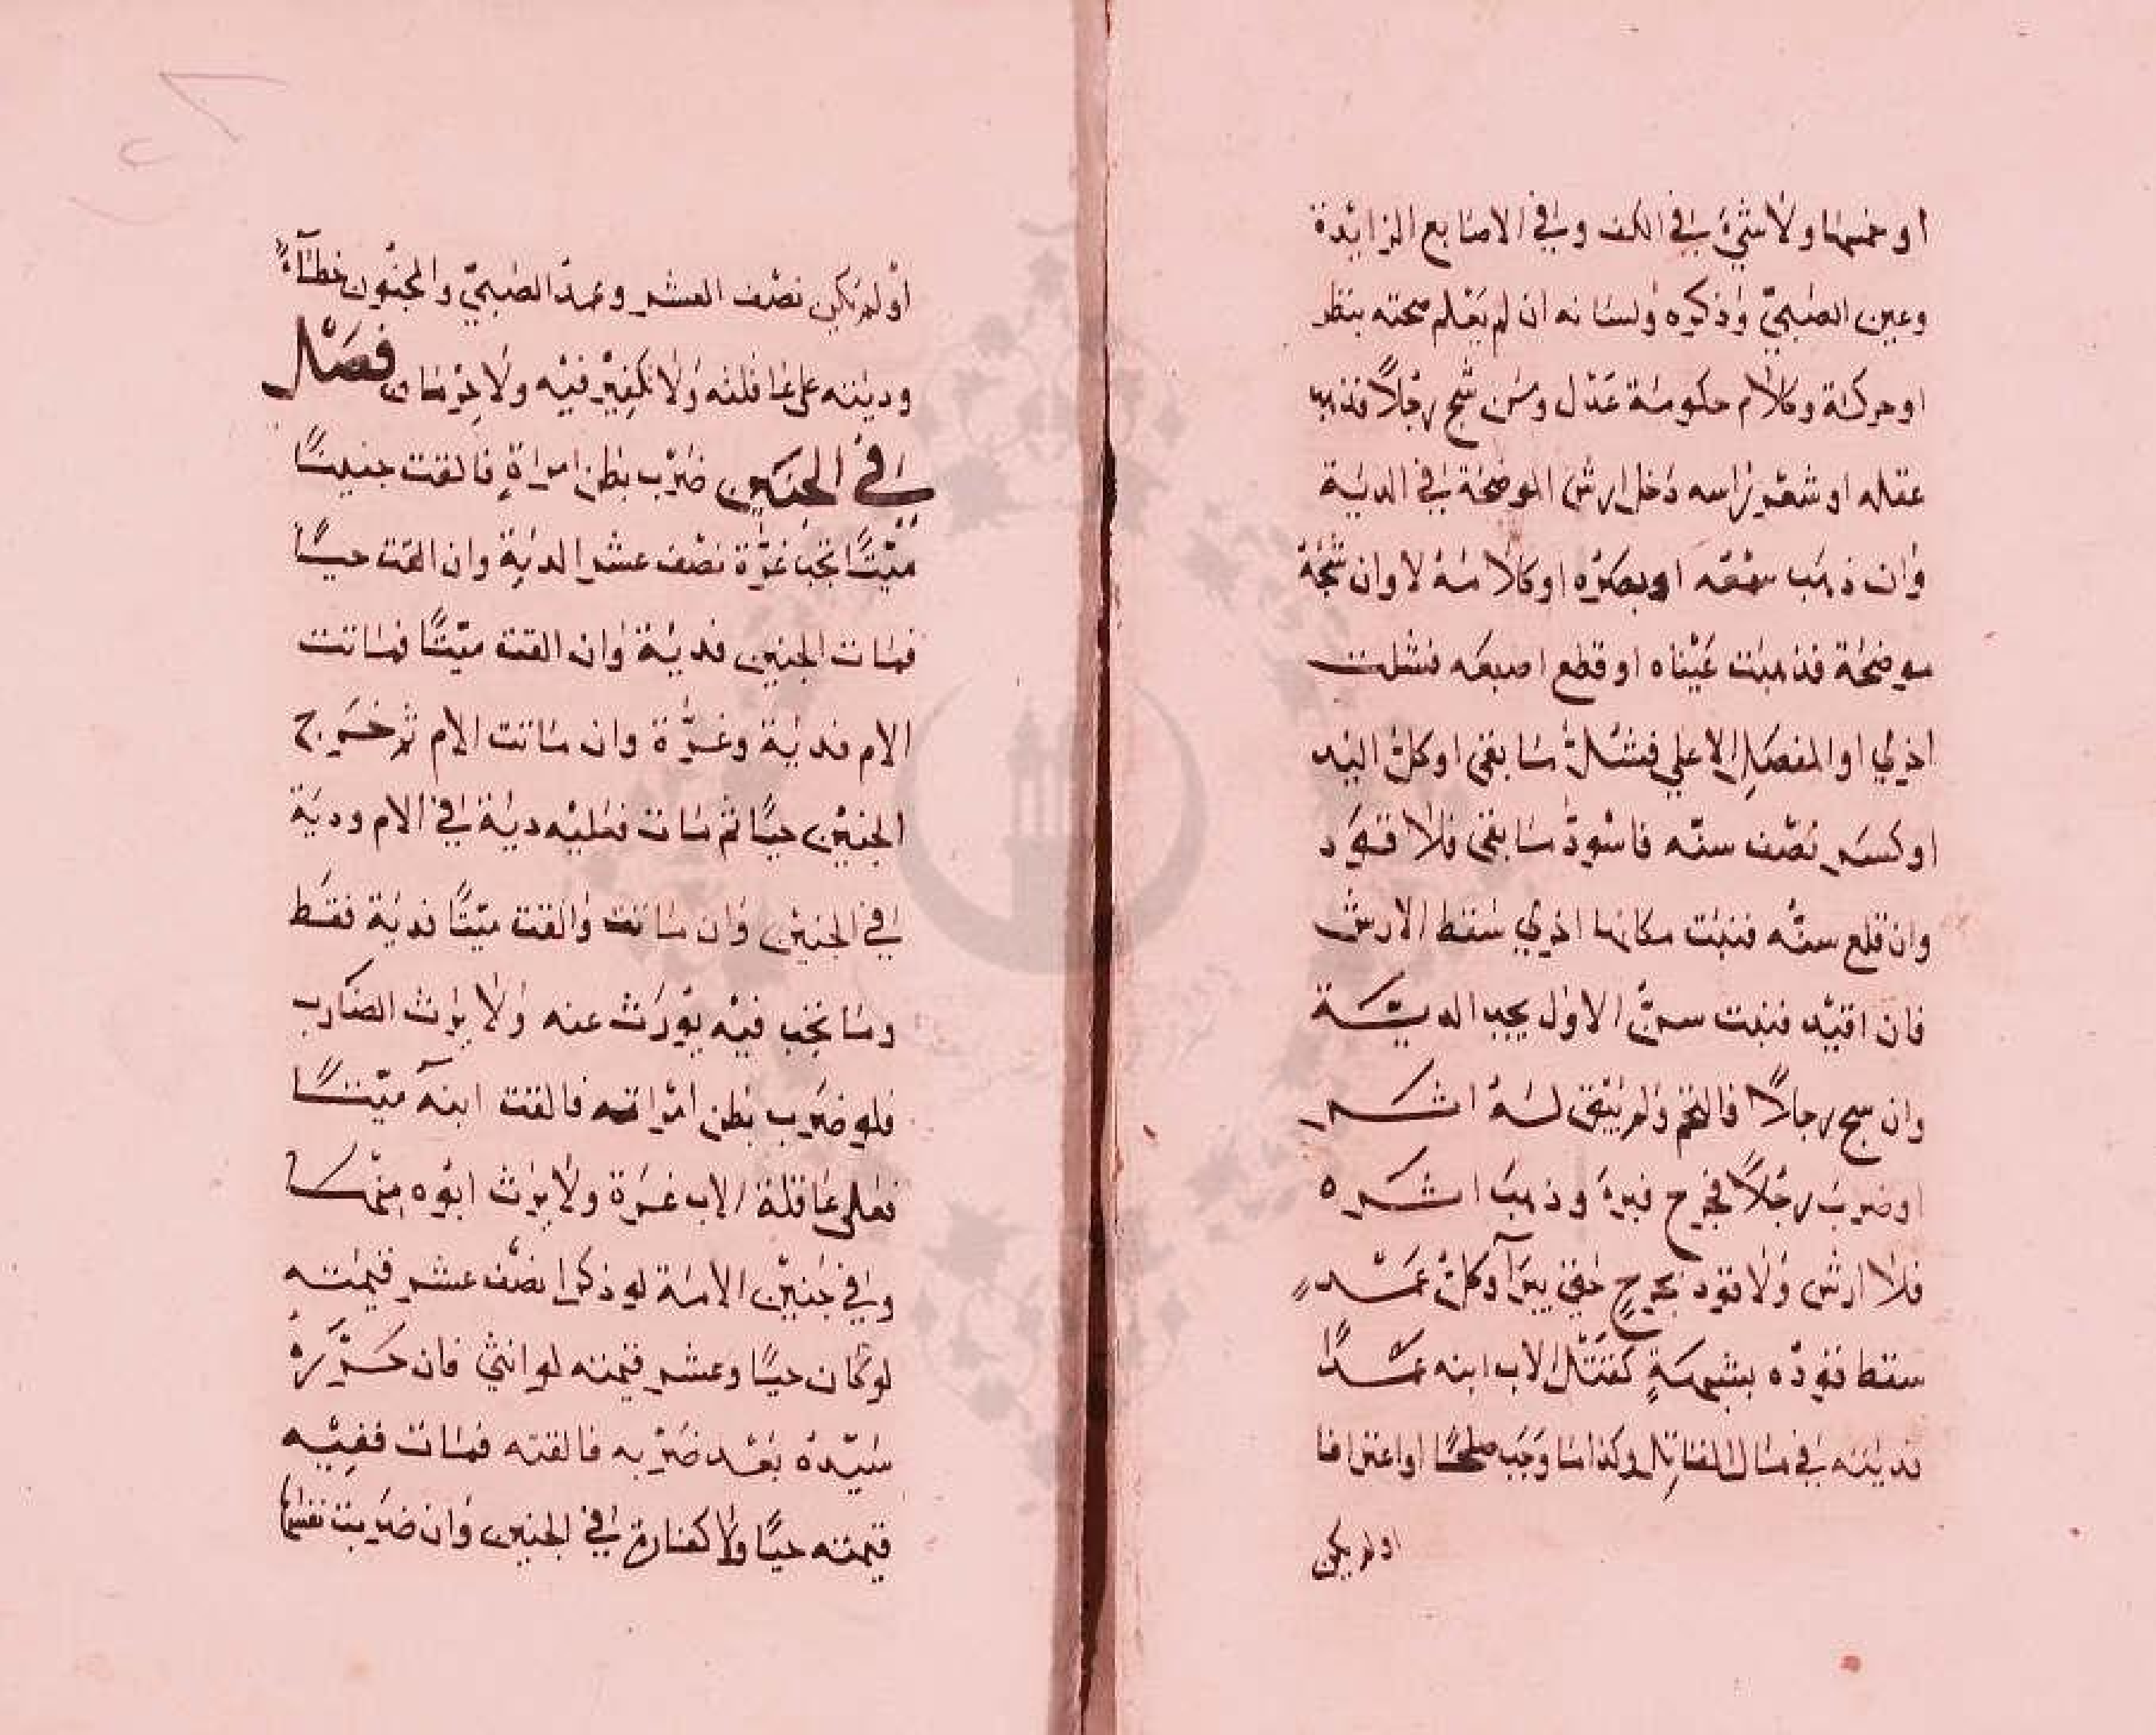 او خمسها ولا شيء في الكف وفي الاصابع الزايدة
وعين الصبي وذكره ولسانه ان لم يعلم صحته بنظر
او حركة وكلام حكومة عدل ومن شج رجلا فذهب
عقله او شعر راسه دخل ارش الموضحة في الدية
وان ذهب سمعه او بصره او كلامه لا وان شجه
موضحة فذهبت عيناه او قطع اصبعه فشلت
اخري او المفصل الاعلي فشل ما بقي او كل اليد
او كسر نصف سنه فاسود ما بقي فلا قود
وان قلع سنه فنبت مكانها اخري سقط الارش
فان اقيد فنبت سن الاول يجب الدية
وان شج رجلا فالتحم ولم يبق له اثر
او ضرب رجلا فجرح فبرء وذهب اثره
فلا ارش ولا قود بجرح حتي يبرآ وكل عمد
سقط قوده بشبهة كقتل الاب ابنه عمدا
فديته في مال القاتل وكذا ما وجب صلحا او اعترافا
او لم يكن
او لم يكن نصف العشر وعمد الصبي والمجنون خطآء
وديته علي عاقلته ولا تكفير فيه ولا حرمان فصل
في الجنين ضرب بطن امراة فالقت جنينا
ميتا تجب غرة نصف عشر الدية وان القت حيا
فمات الجنين فدية وان القت ميتا فماتت
الام فدية وغرة وان ماتت الام ثم خرج
الجنين حيا ثم مات فعليه دية في الام ودية
في الجنين وان ماتت والقت ميتا فدية فقط
وما تجب فيه يورث عنه ولا يرث الضارب
فلو ضرب بطن امراته فالقت ابنه ميتا
فعلي عاقلة الاب غرة ولا يرث ابوه منها
وفي جنين الامة لو ذكرا نصف عشر قيمته
لو كان حيا وعشر قيمته لو انثي فان حرره
سيده بعد ضربه فالقته فمات ففيه
قيمته حيا ولا كفارة في الجنين وان ضربت نفسها